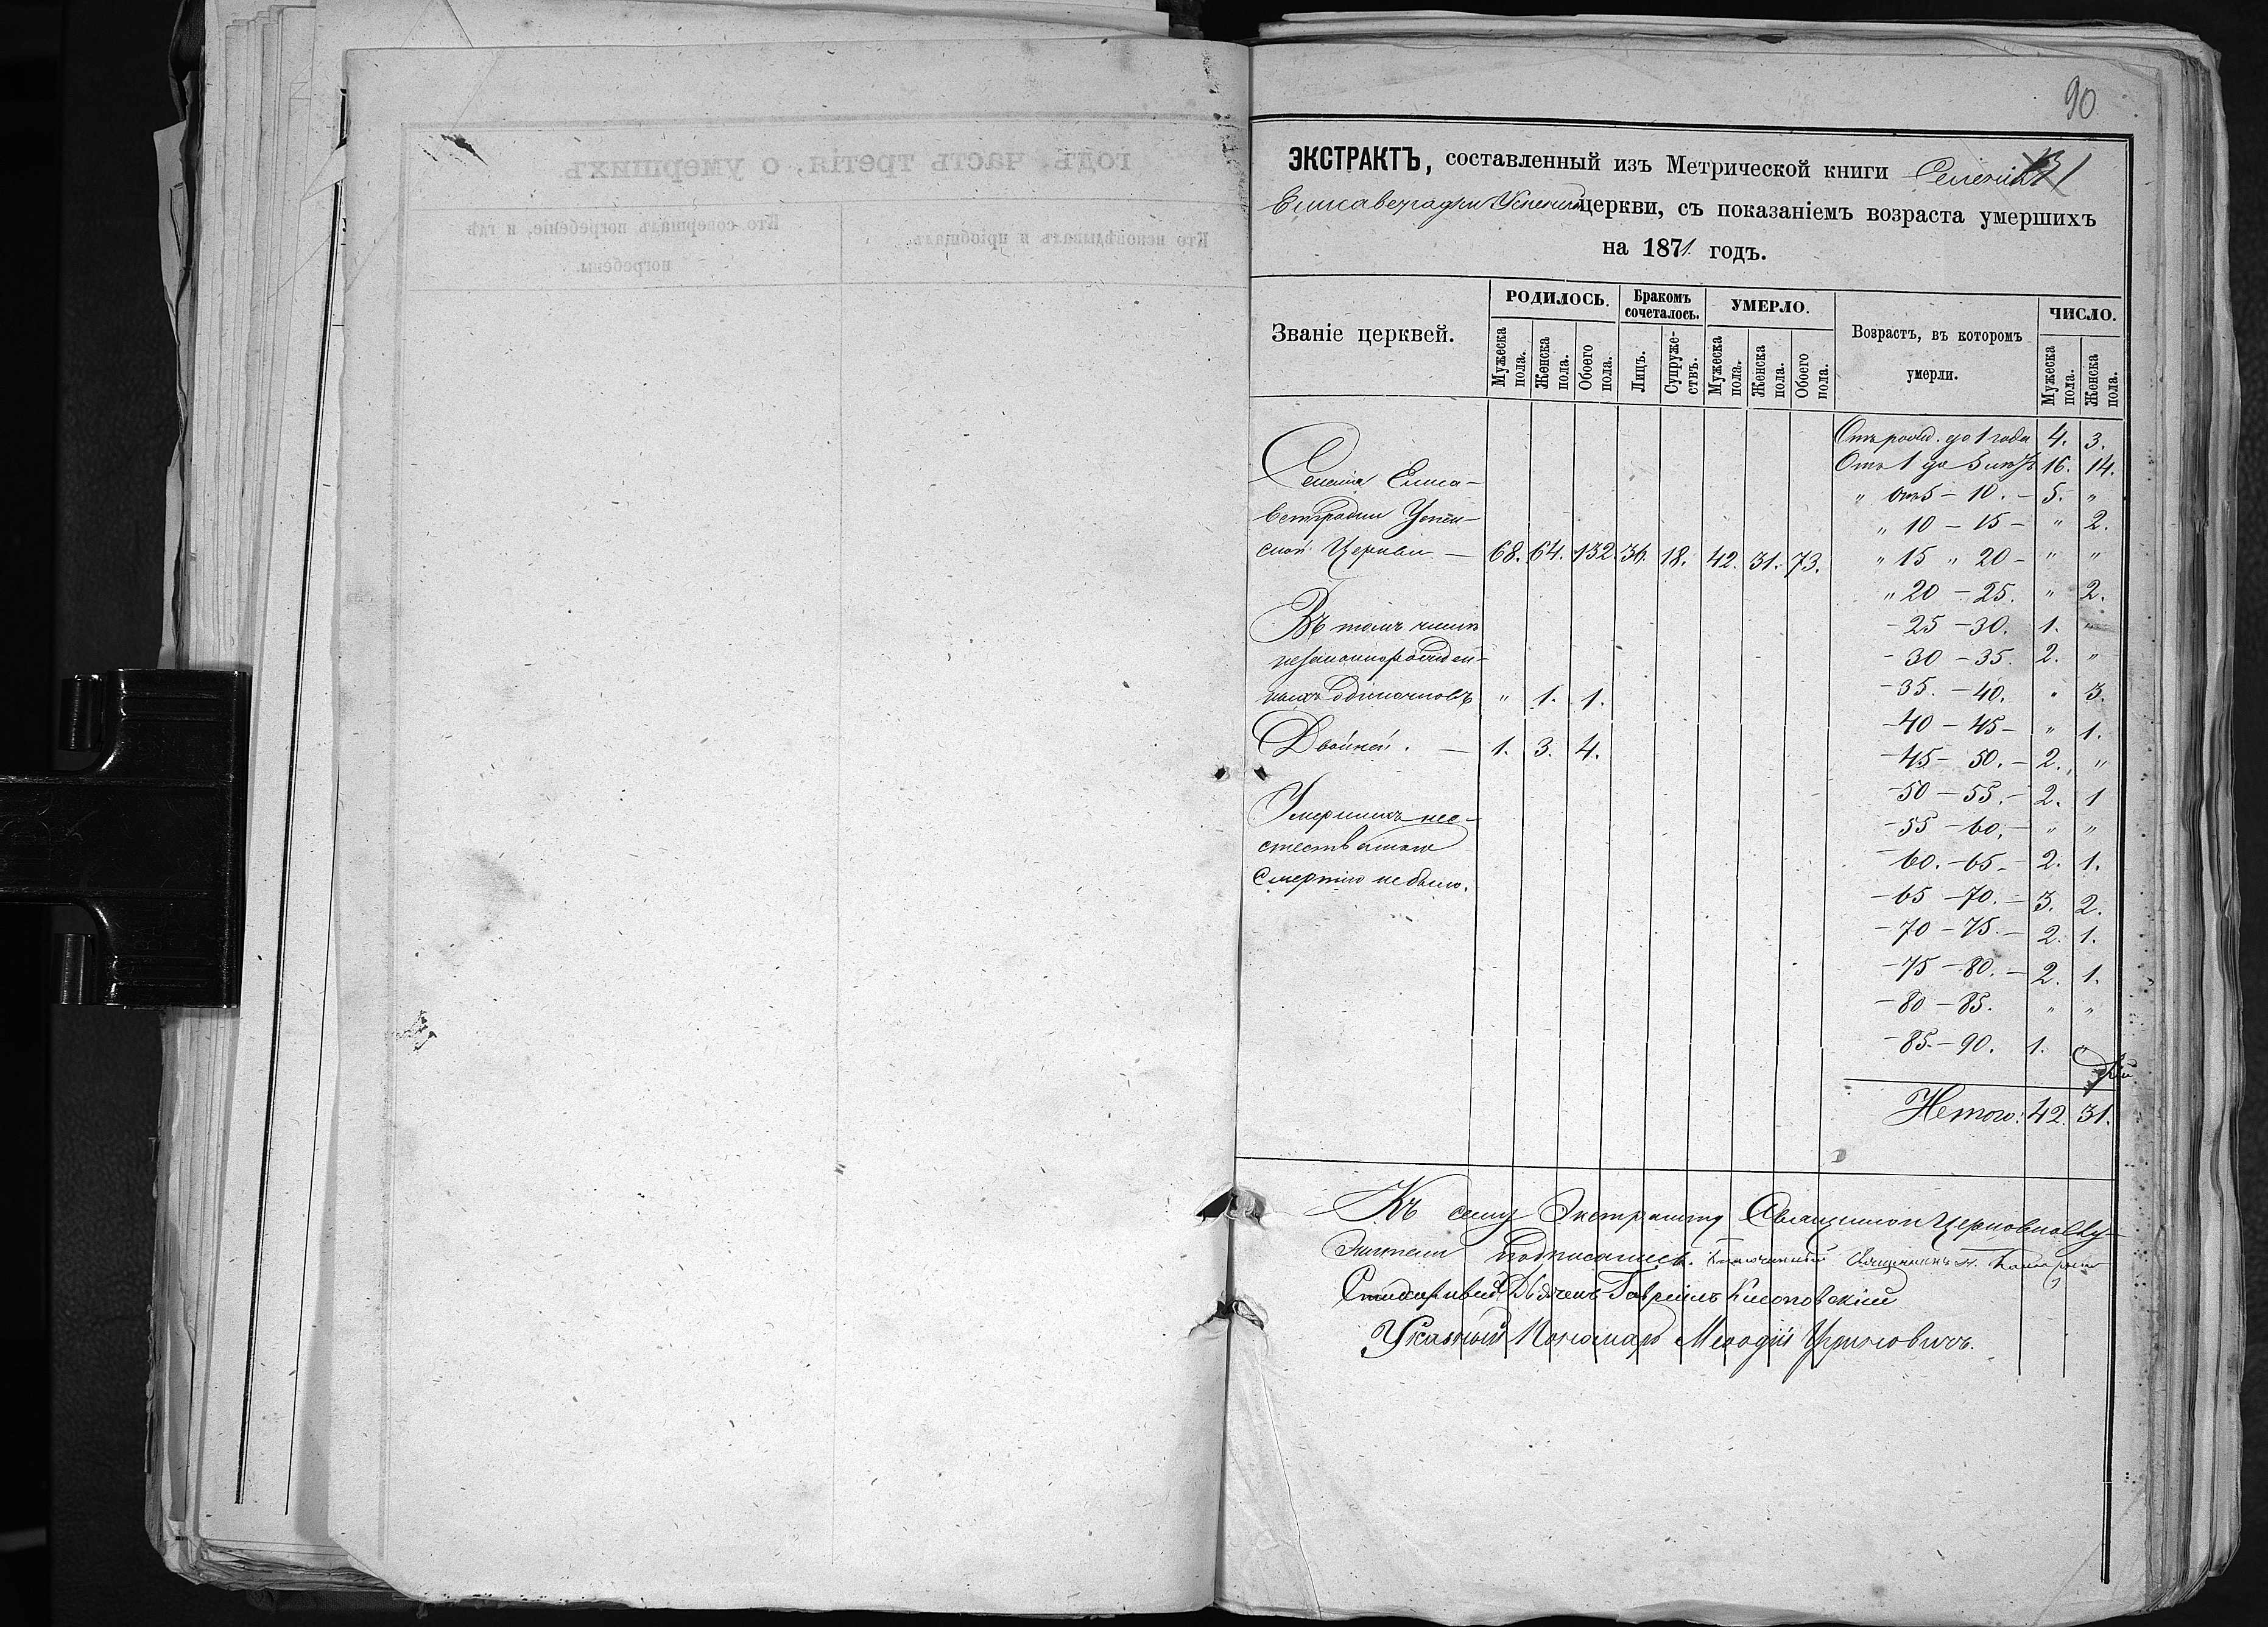 90
ЭКСТРАКТЪ, составленный изъ Метрической книги Селенія
Елисаветградки Успенской церкви, съ показаніемъ возраста умершихъ
на 1871 годъ.
Званіе церквей.
РОДИЛОСЬ. Бракомъ сочеталось. УМЕРЛО. Возрастъ, въ которомъ умерли. ЧИСЛО.
Мужеска пола. Женска пола. Обоего пола. Лицъ. Супружествъ. Мужеска пола. Женска пола. Обоего пола. Мужеска пола. Женска пола.
Селенія Елиса-
ветградки Успен-
ской Церкви — 68. 64. 132. 36. 18. 42. 31. 73.
Въ томъ числѣ
незаконнорожден-
ныхъ одиночновъ " 1. 1.
Двойней. — 1. 3. 4.
Умершихъ нее-
стественною
Смертію не было.
Отъ рожд. до 1 года 4. 3.
Отъ 1 до 5 лѣтъ 16. 14.
" отъ 5 – 10. – 5. "
" 10 – 15 – " 2.
" 15 " 20 – " "
" 20 – 25. " 2.
– 25 – 30. 1. "
– 30 – 35. 2. "
– 35. – 40. " 3.
– 40 – 45 – " 1.
– 45 – 50. – 2. "
– 50 – 55. – 2. 1
– 55 – 60. – " "
– 60. – 65 – 2. 1.
– 65 – 70. – 3. 2.
– 70 – 75. – 2. 1.
– 75 – 80. – 2. 1.
– 80 – 85. " "
– 85. – 90. 1. "
Итого: 42. 31.
Къ сему Экстракту Священноцерковнослу-
жители подписались. Священникъ
Стихарный Дьячекъ Гавріилъ
Указный Пономарь Меѳодій
годъ, часть третія, о умершихъ.
Кто исповѣдывалъ и пріобщалъ.
Кто совершалъ погребеніе, и гдѣ
погребены.